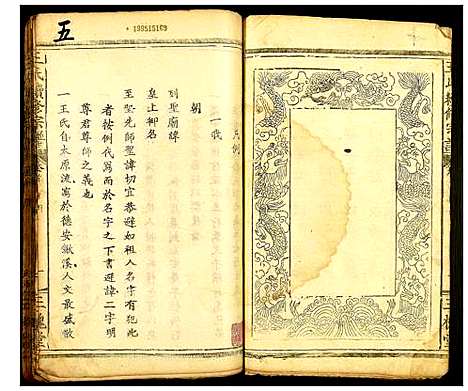 五
199515169
凡例
一我
朝
列聖廟諱
皇上御名
至聖先師聖諱切宜恭避如祖人名字有犯此
者按例代寫而於名字之下書避諱二字明
尊君尊師之義也
一王氏自太原流寓於德安鍁溪人文最盛散
三槐堂